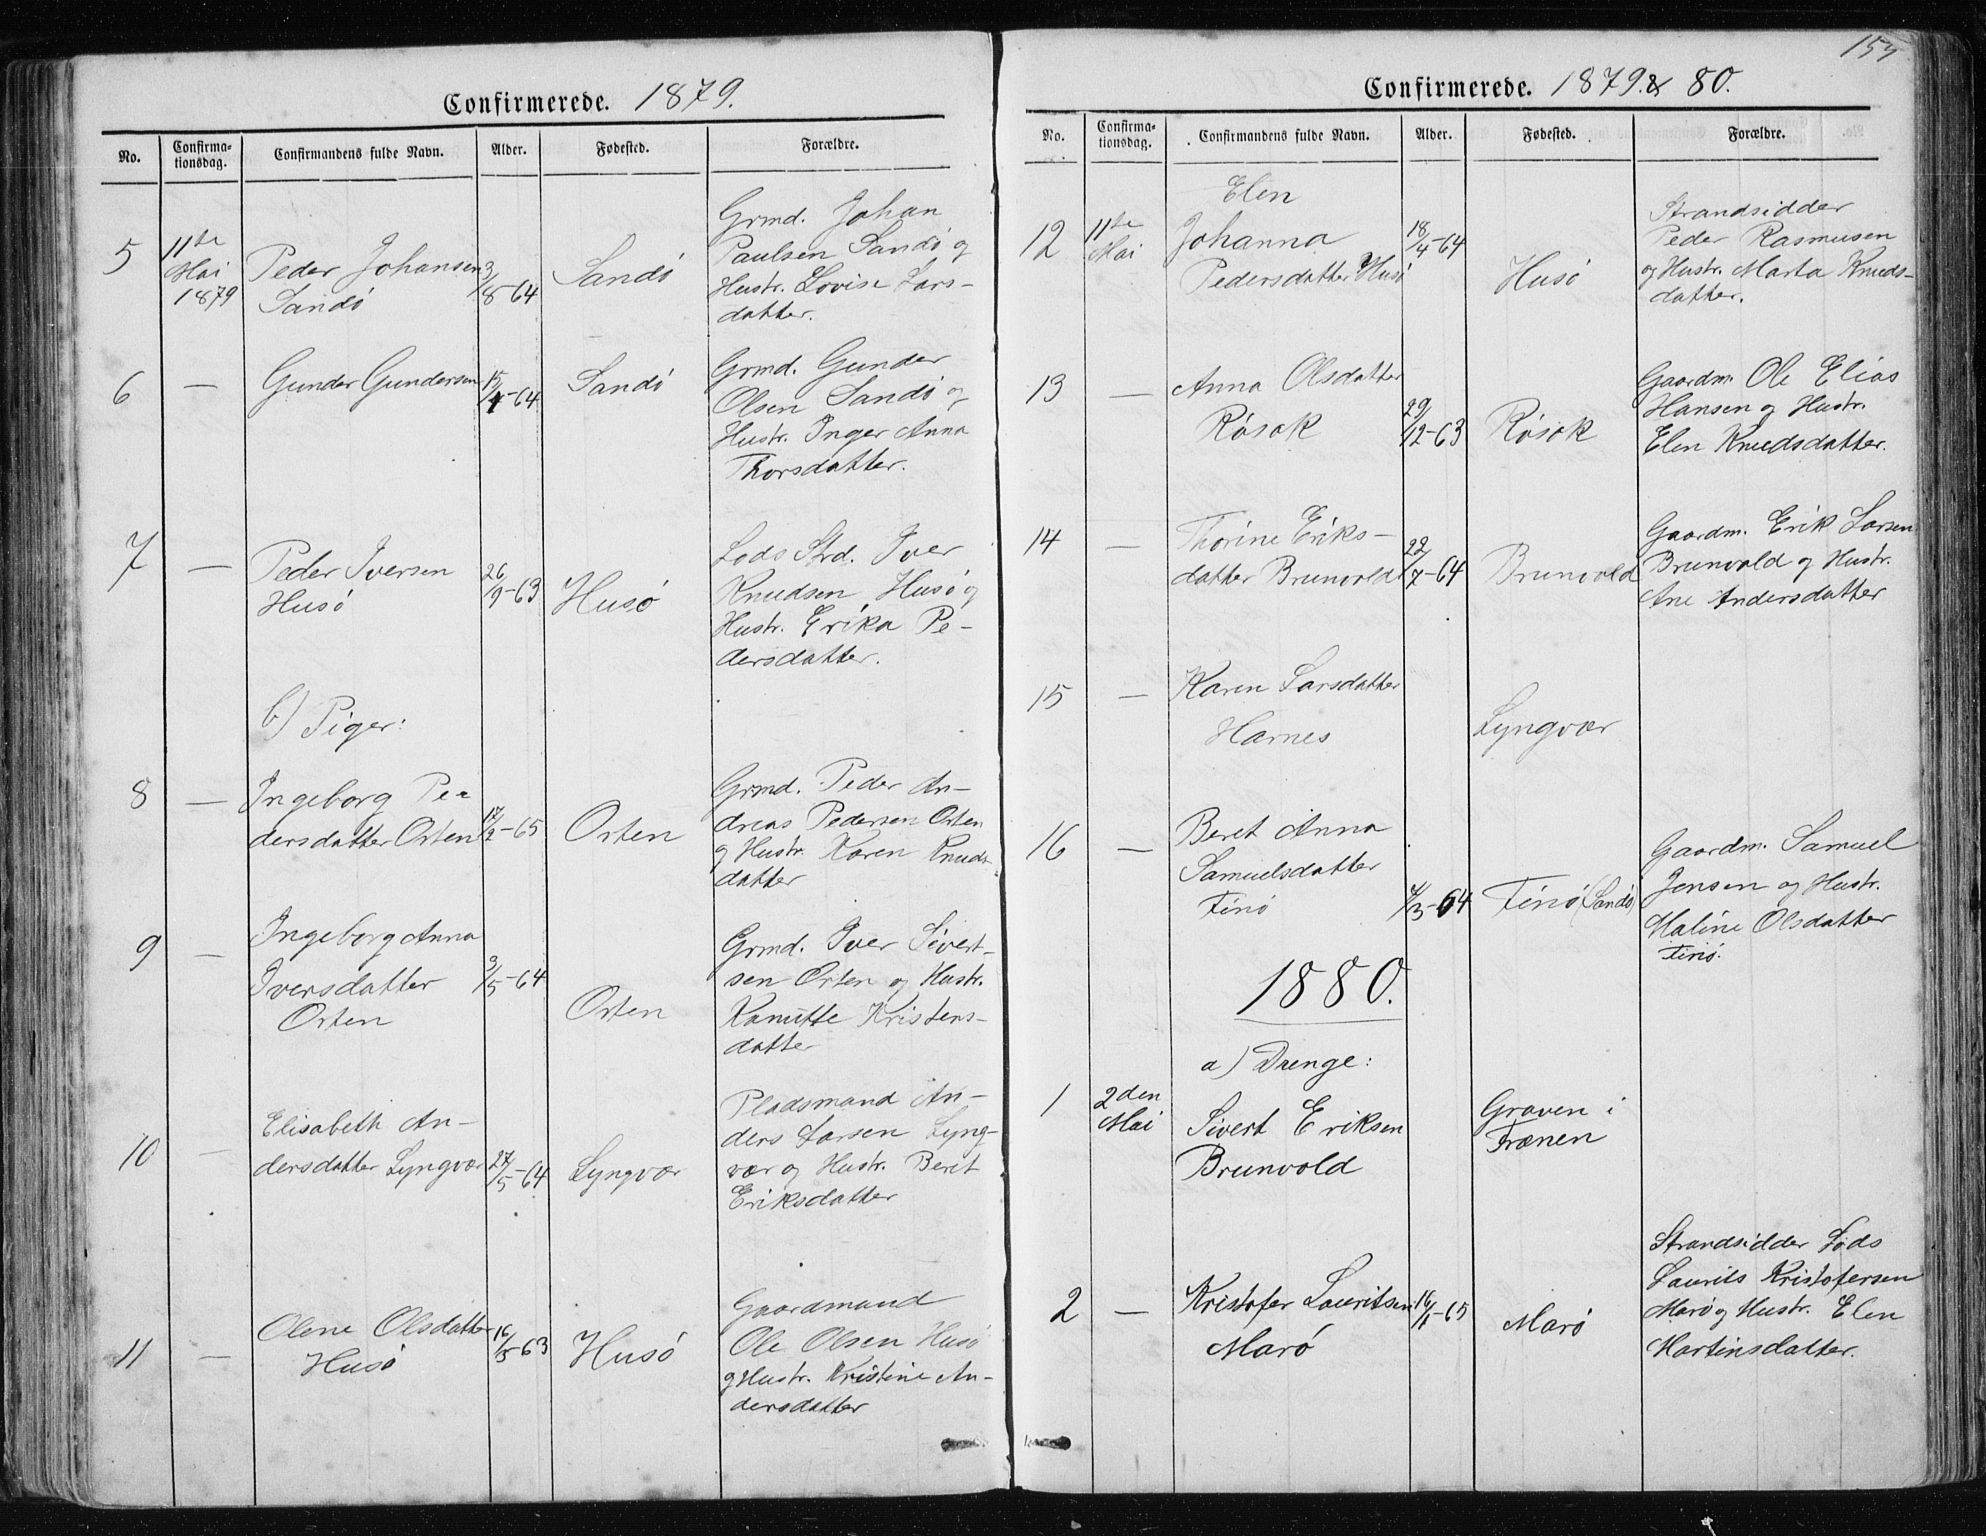 Confirmerede. 1879.
No.
Confirma-
tionsdag.
Confirmandens fulde Navn.
Alder.
Fødested.
Forældre.
5
11te
Mai
1879
Peder Johansen
Sandö
3/8-64
Sandö
Grmd. Johan
Paulsen Sandö og
Hustr. Lovise Lars-
datter.
6
—
Gunder Gundersen
15/4-64
Sandö
Grmd. Gunder
Olsen Sandö og
Hustr. Inger Anna
Thorsdatter.
7
—
Peder Iversen
Husö
26/9-63
Husö
Lods Strd. Iver
Knudsen Husö og
Hustr. Erika Pe-
dersdatter.
b) Piger:
8
—
Ingeborg Pe-
dersdatter Orten
17/2-65
Orten
Grmd. Peder An-
dreas Pedersen Orten
og Hustr. Karen Knuds-
datter
9
—
Ingeborg Anna
Iversdatter
Orten
3/5-64
Orten
Grmd. Iver Sivert-
sen Orten og Hustr.
Kanutte Kristens-
datter
10
—
Elisabeth An-
dersdatter Lyngvær
27/5-64
Lyngvær
Pladsmand An-
ders Larsen Lyng-
vær og Hustr. Berit
Eriksdatter
11
—
Olene Olsdatter
Husö
16/5-63
Husö
Gaardmand
Ole Olsen Husö
og Hustr. Kristine An-
dersdatter
Confirmerede. 1879. & 80.
No.
Confirma-
tionsdag.
Confirmandens fulde Navn.
Alder.
Fødested.
Forældre.
12
11te
Mai
Elen
Johanna
Pedersdatter Husö
18/4-64
Husö
Strandsidder
Peder Rasmusen
og Hustr. Marta Knuds-
datter.
13
—
Anna Olsdatter
Rösok
29/12-63
Rösok
Gaardm. Ole Elias
Hansen og Hustr.
Elen Knudsdatter.
14
—
Thorine Eriks-
datter Brunvold
22/7-64
Brunvold
Gaardm. Erik Larsen
Brunvold og Hustr.
Ane Andersdatter
15
—
Karen Larsdatter
Harnes
Lyngvær
16
—
Beret Anna
Samuelsdatter
Finö
4/3-64
Finö (Sandö)
Gaardm. Samuel
Jensen og Hustr.
Maline Olsdatter
Finö.
1880.
a) Drenge:
1
2den
Mai
Sivert Eriksen
Brunvold
Graven i
Frænen
2
—
Kristofer Lauritsen
Marö
16/1-65
Marö
Strandsidder Lods
Laurits Kristofersen
Marö og Hustr. Elen
Martinsdatter.